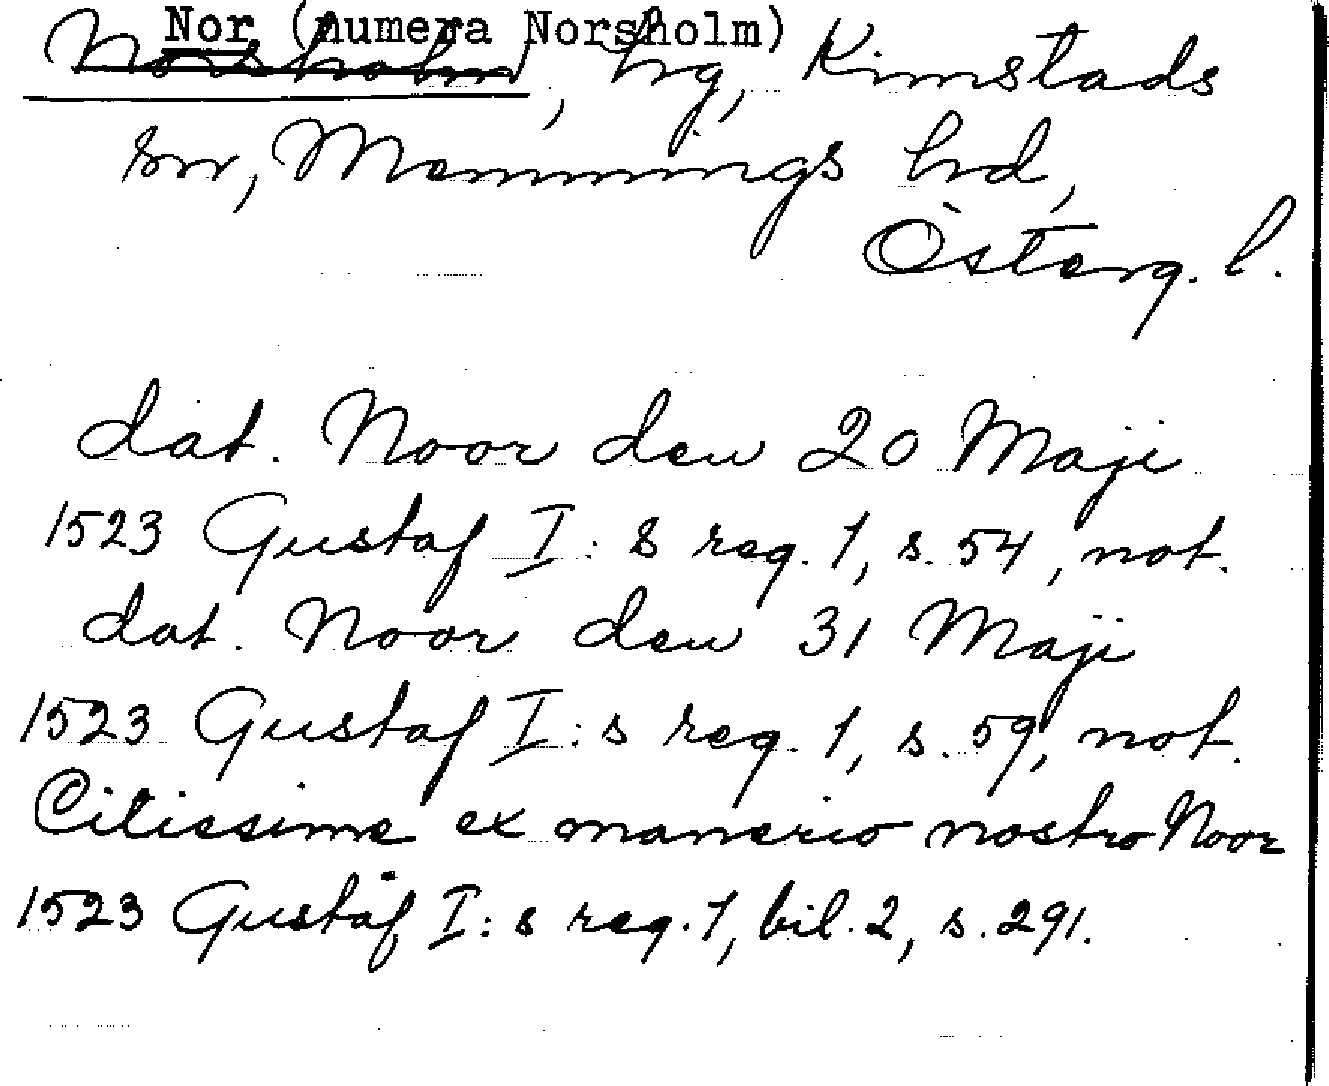 Nor (numera Norsholm)
Norsholm, hg, Kimstads
sn, Memmings hd,
Österg. l.
dat. Noor den 20 Maji
1523 Gustaf I:s reg. 1, s. 54, not.
dat. Noor den 31 Maji
1523 Gustaf I:s reg. 1, s. 59, not.
Citissime ex manerio nostro Noor
1523 Gustaf I:s reg. 1, bil. 2, s. 291.